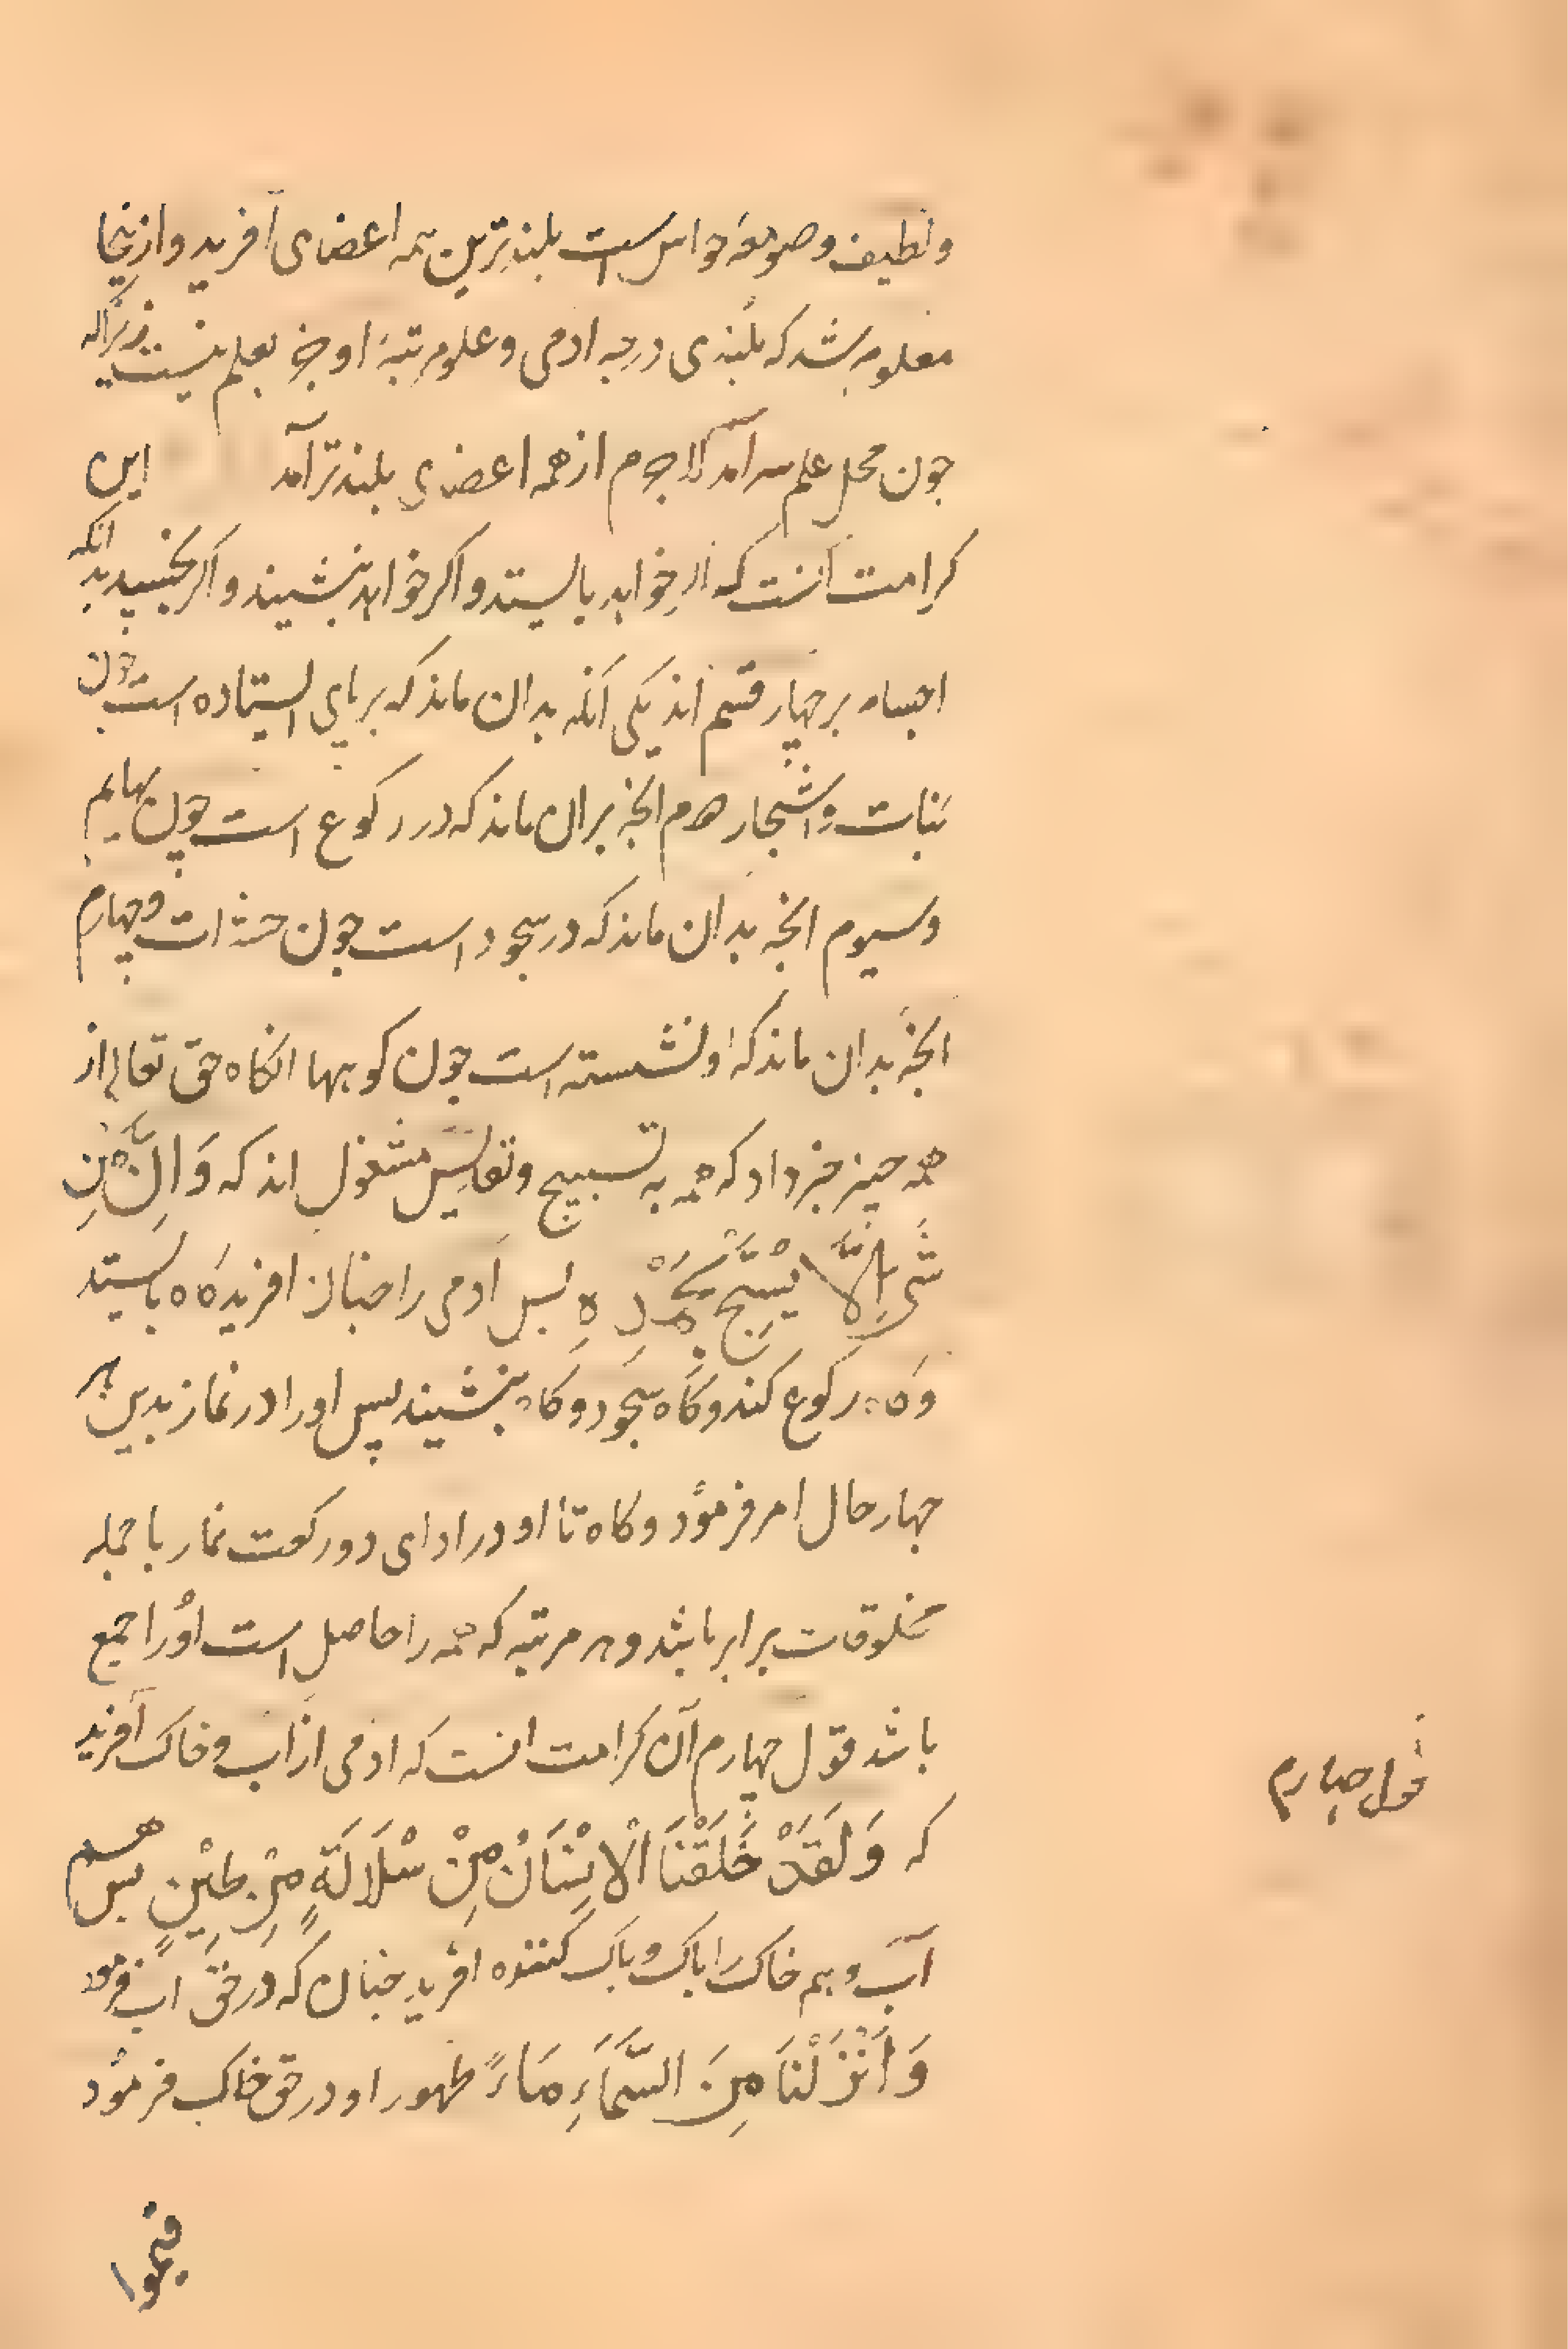 ولطیف وصومعهٔ حواس است بلندترین همه اعضای آفرید وازینجا
معلوم شد که بلندی درجه ادمی وعلو مرتبهٔ او جز بعلم نیست زیراکه
جون محل علم سر آمد لاجرم از همه اعضای بلندتر آمد این
کرامت آنست که اگر خواهد بایستد واکر خواهد بنشیند واکر بخسپد بدانکه
اجسام بر چهار قسم اند یکی آنکه بدان ماند که بر پای ایستاده است جون
نبات واشجار دوم انچه بران ماند که در رکوع است چون بهایم
وسیوم انچه بدان ماند که در سجود است جون حشرات وچهارم
انچه بدان ماند که او نشسته است جون کوهها انکاه حق تعالی از
همه جیز خبر داد که همه به تسبیح وتقدیس مشغول اند که وَاِنْ مِّنْ
شَیْ اِلَّا یُسَبِّحُ بِحَمْدِهِ بس آدمی را جنان افریده که بایستد
وکاه رکوع کند وکاه سجود وکاه بنشیند پس اورا در نماز بدین هر
جهار حال امر فرمود وکاه تا او در ادای دو رکعت نماز با جمله
مخلوقات برابر باشد وهر مرتبه که همه را حاصل است اورا جمع
باشد قول چهارم آن کرامت انست که ادمی از آب وخاک آفرید
قول چهارم
که وَلَقَدْ خَلَقْنَا الْاِنْسَانَ مِنْ سُلَالَةٍ مِنْ طِیْنٍ بس هم
آب وهم خاک را باک وباک کننده افرید جنان که در حق آب فرمود
وَاَنْزَلْنَا مِنَ السَّمَآءِ مَاءً طهورا ودر حق خاک فرمود
فتیمموا